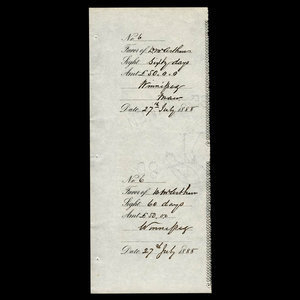 No. 6
Favor of D McArthur
Sight Sixty days
Amt £50.0.0
Winnipeg
Man
Date 27th July 1888
No. 6
Favor of D McArthur
Sight 60 days
Amt £50.00
Winnipeg
Date 27th July 1888